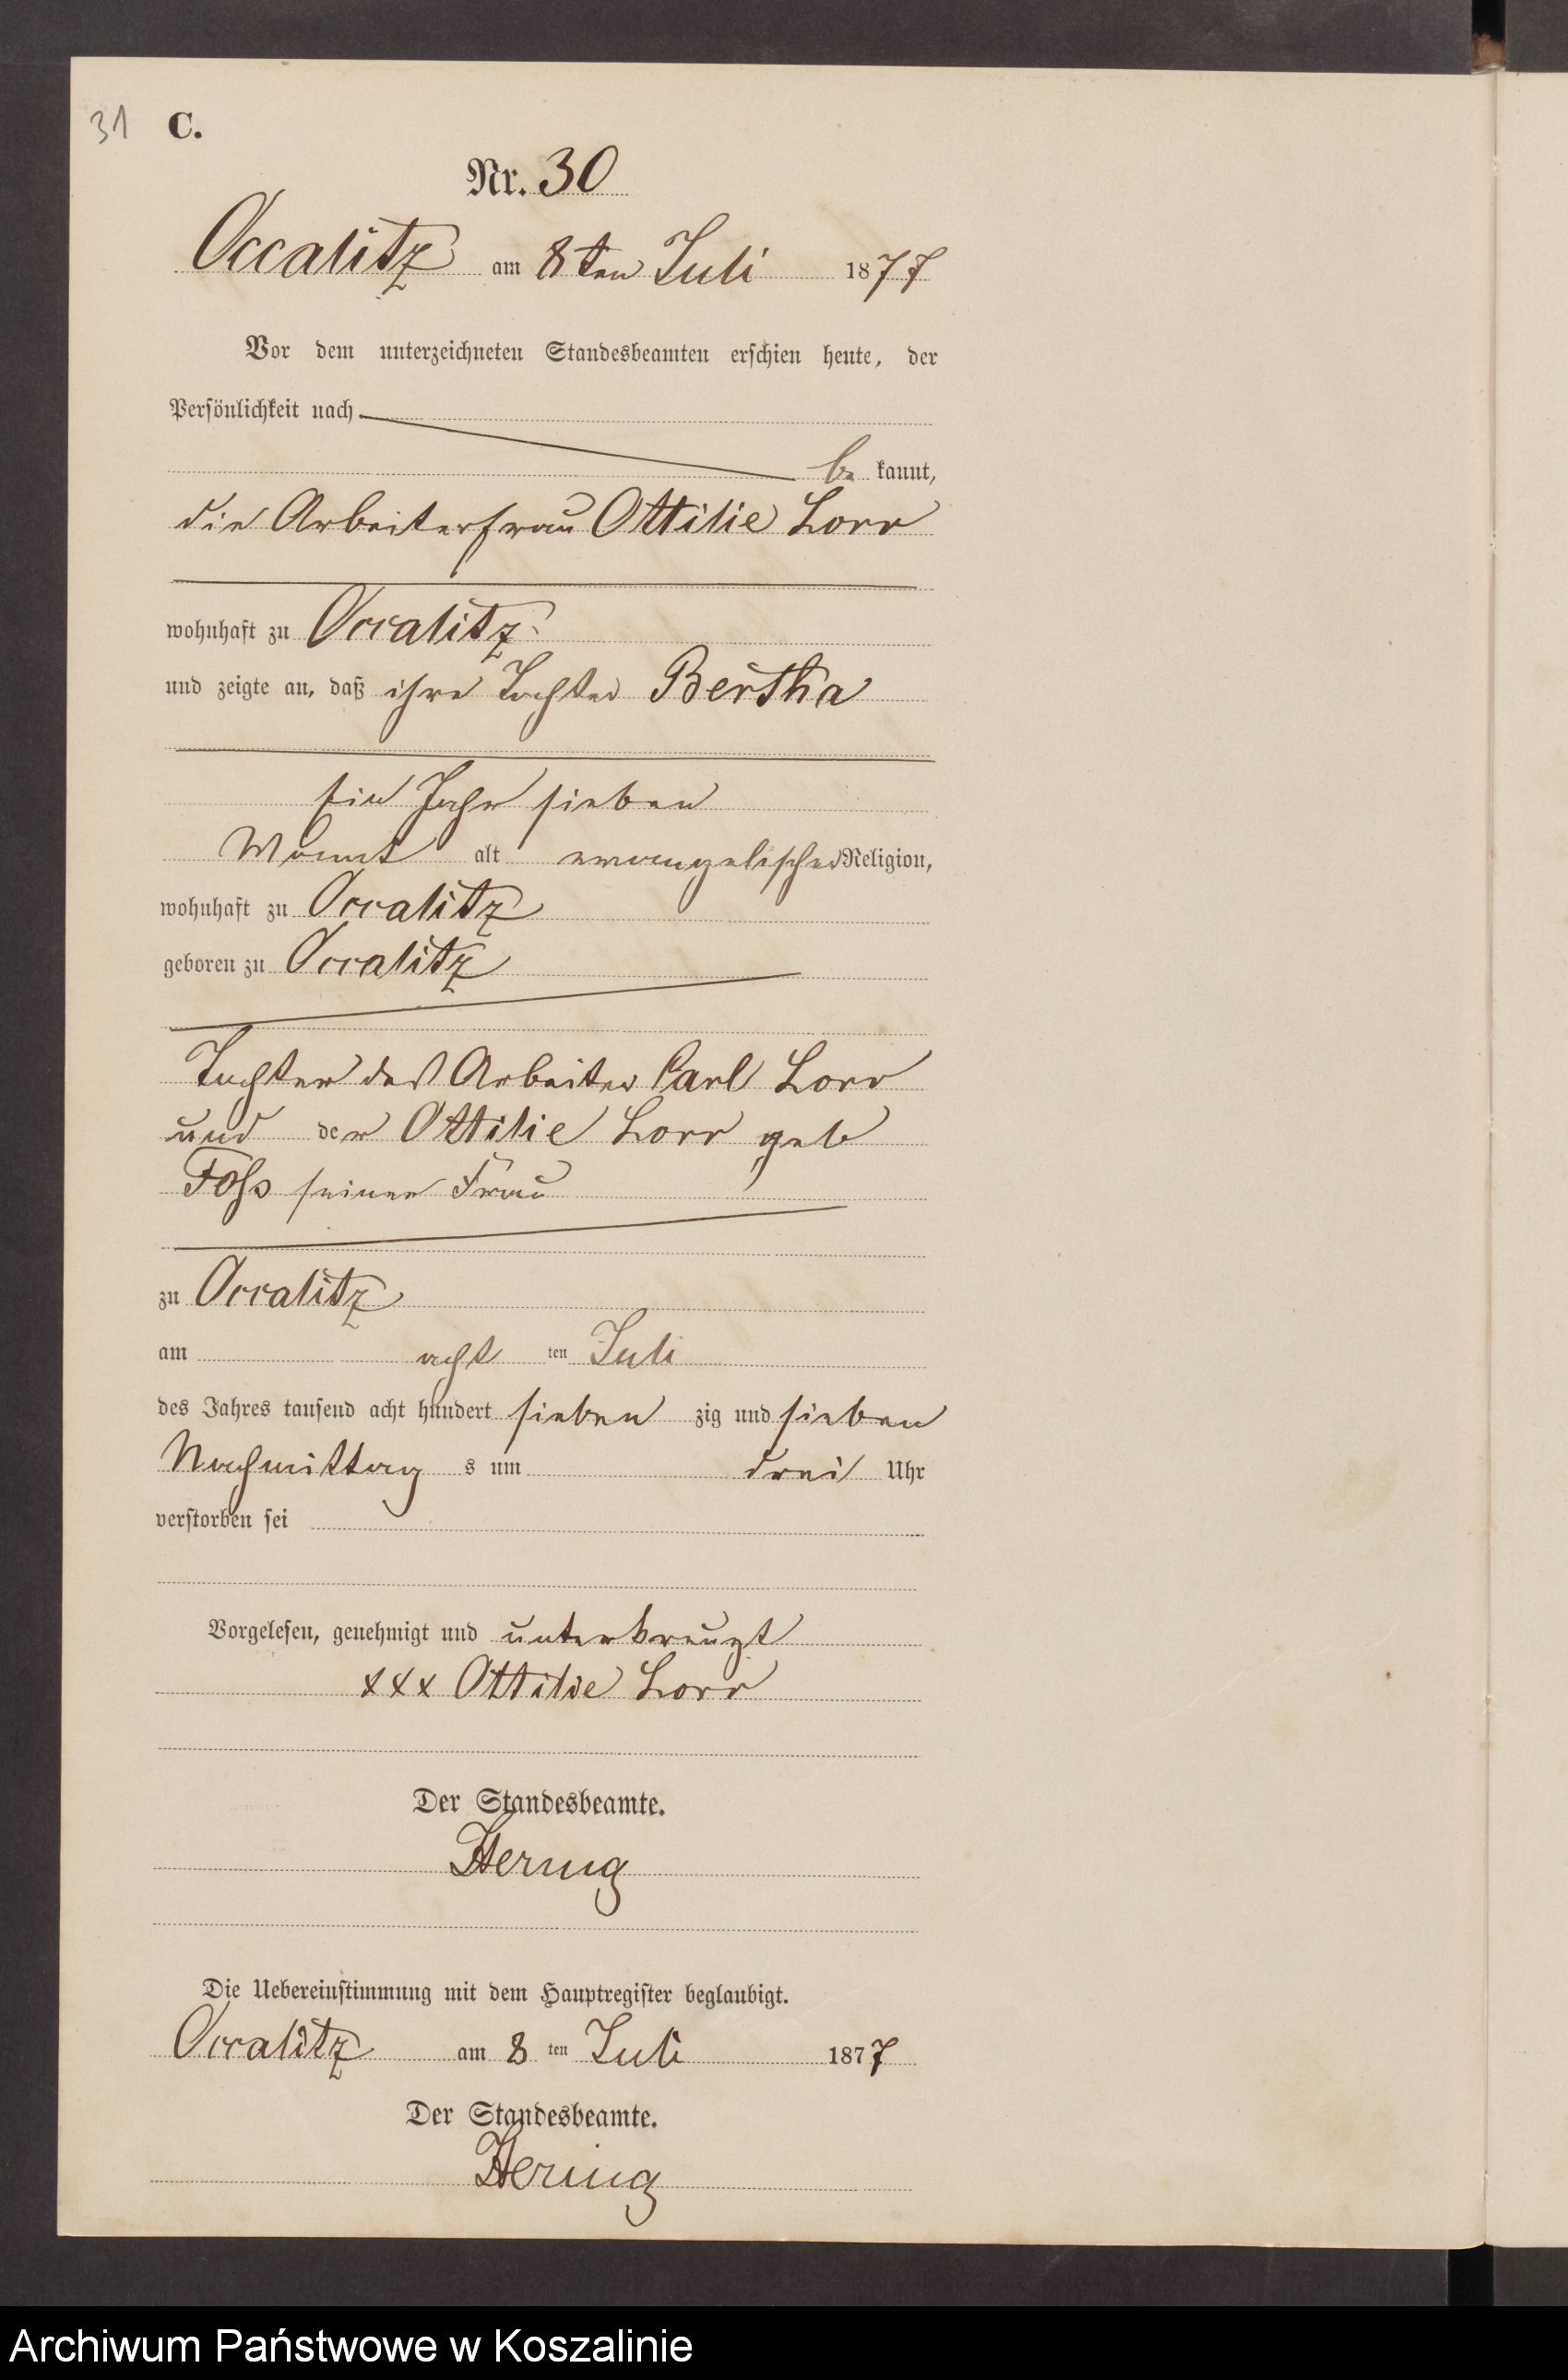 31 C.
Nr. 30
Occalitz am 8ten Juli 1877
Vor dem unterzeichneten Standesbeamten erschien heute, der
Persönlichkeit nach
be kannt,
die Arbeiterfrau Ottilie Lorr
wohnhaft zu Occalitz
und zeigte an, daß ihre Tochter Bertha
ein Jahr sieben
Monat alt evangelischer Religion,
wohnhaft zu Occalitz
geboren zu Occalitz
Tochter des Arbeiter Carl Lorr
und der Ottilie Lorr geb
Foss seiner Frau
zu Occalitz
am acht ten Juli
des Jahres tausend acht hundert sieben zig und sieben
Nachmittag s um drei Uhr
verstorben sei
Vorgelesen, genehmigt und unterkreuzt
xxx Ottilie Lorr
Der Standesbeamte.
Hering
Die Uebereinstimmung mit dem Hauptregister beglaubigt.
Occalitz am 8 ten Juli 1877
Der Standesbeamte.
Hering
Archiwum Państwowe w Koszalinie